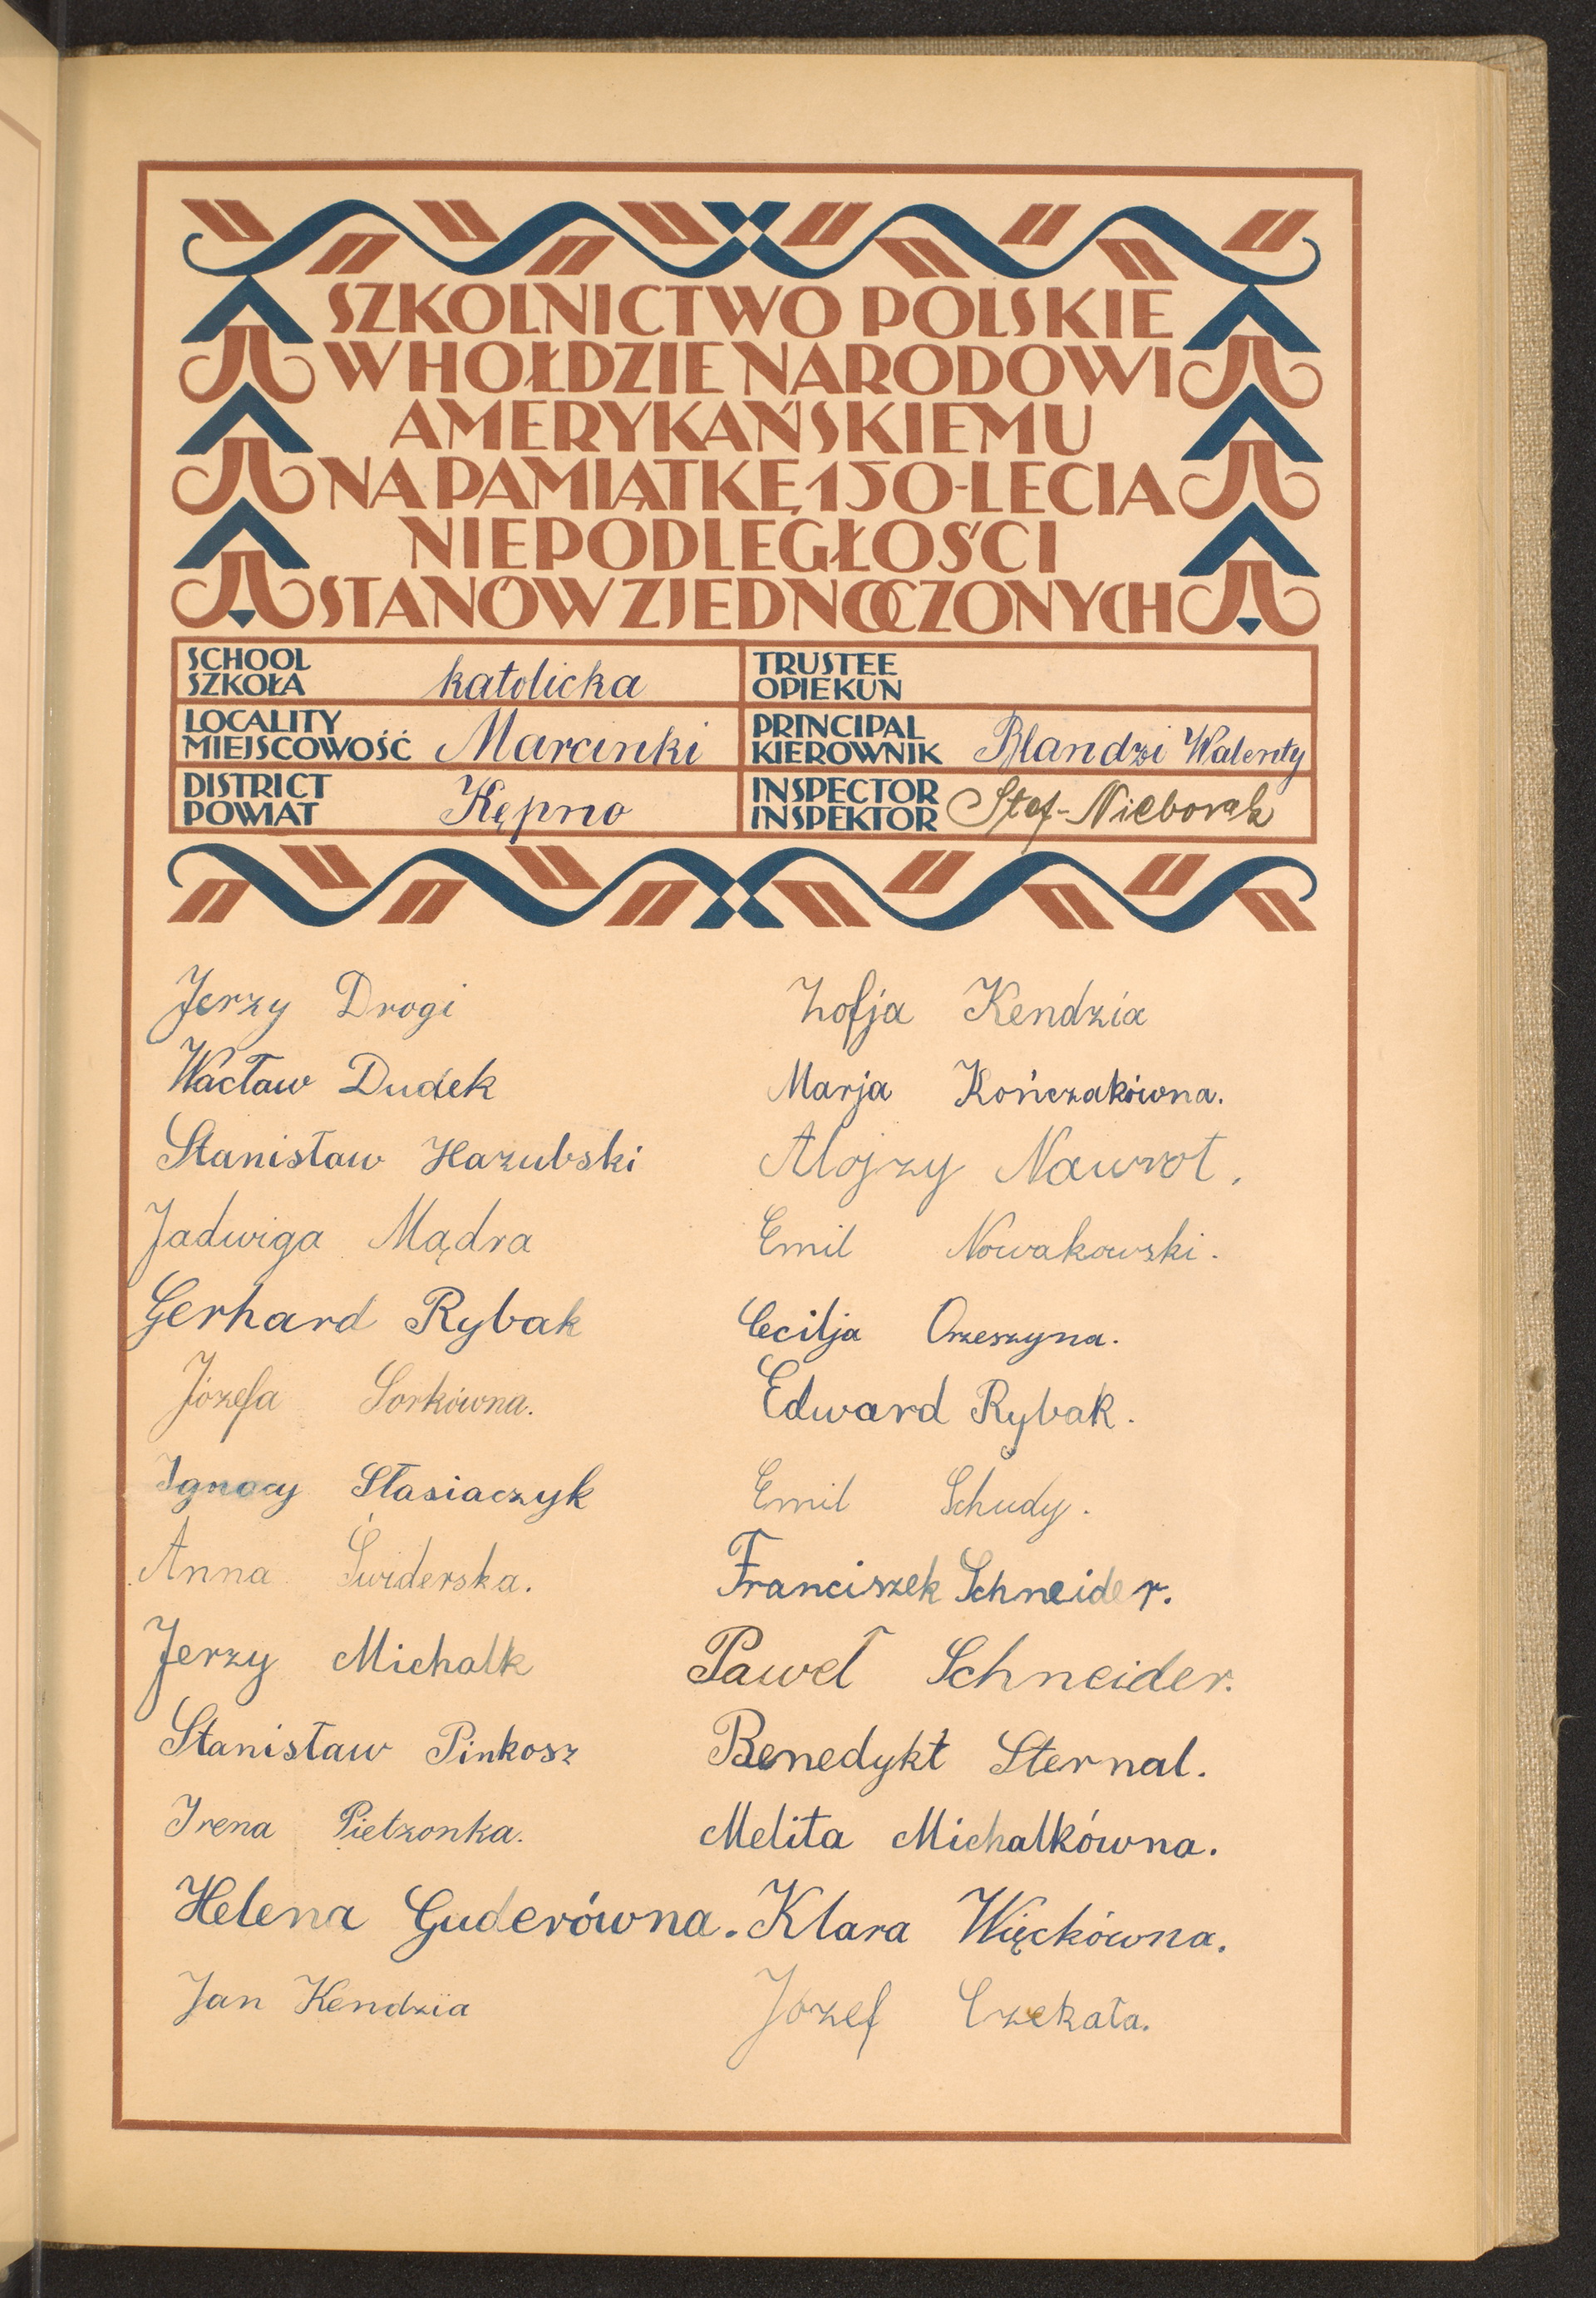 SZKOLNICTWO POLSKIE
W HOŁDZIE NARODOWI
AMERYKAŃSKIEMU
NA PAMIĄTKĘ 150-LECIA
NIEPODLEGŁOŚCI
STANÓW ZJEDNOCZONYCH
SCHOOL
SZKOŁA katolicka
TRUSTEE
OPIEKUN
LOCALITY
MIEJSCOWOŚĆ Marcinki
PRINCIPAL
KIEROWNIK Blandzi Walenty
DISTRICT
POWIAT Kępno
INSPECTOR
INSPEKTOR Stef-Nieborak
Jerzy Drogi
Wacław Dudek
Stanisław Hazubski
Jadwiga Mądra
Gerhard Rybak
Józefa Sorkówna.
Ignacy Stasiaczyk
Anna Świderska.
Jerzy Michalk
Stanisław Pinkosz
Irena Pietzonka.
Helena Guderówna.
Jan Kendzia
Zofja Kendzia
Marja Kończakówna.
Alojzy Nawrot.
Emil Nowakowski.
Cecilja Orzeszyna.
Edward Rybak.
Emil Schudy.
Franciszek Schneider.
Paweł Schneider.
Benedykt Sternal.
Melita Michalkówna.
Klara Więckówna.
Józef Czekała.